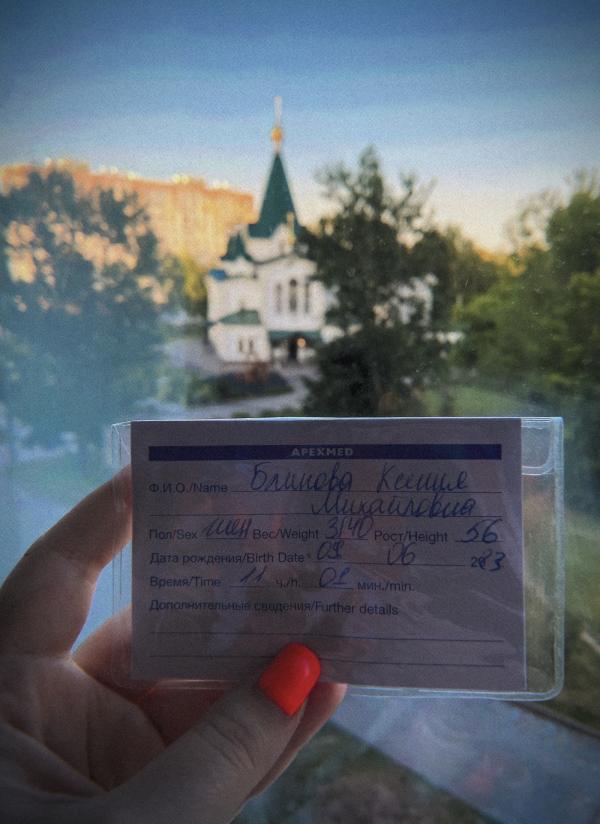 APEXMED
Ф.И.О./Name Блинова Ксения
Михайловна
Пол/Sex жен Вес/Weight 3140 Рост/Height 56
Дата рождения/Birth Date 09 06 2023
Время/Time 11 ч./h. 01 мин./min.
Дополнительные сведения/Further details